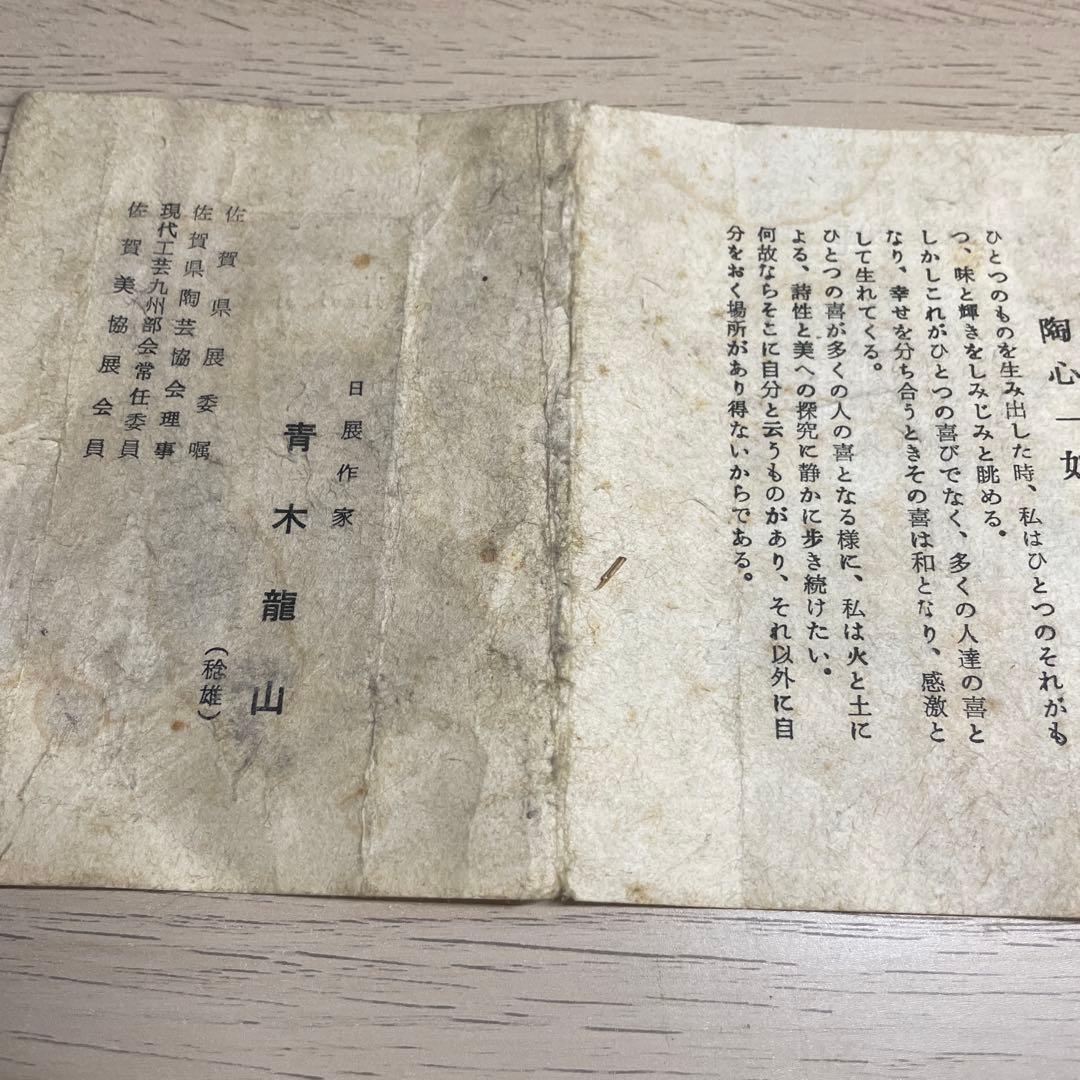 陶心一如
ひとつのものを生み出した時、私はひとつのそれがも
つ、味と輝きをしみじみと眺める。
しかしこれがひとつの喜びでなく、多くの人達の喜と
なり、幸せを分ち合うときその喜は和となり、感激と
して生れてくる。
ひとつの喜が多くの人の喜となる様に、私は火と土に
よる、詩性と美への探究に静かに歩き続けたい。
何故ならそこに自分と云うものがあり、それ以外に自
分をおく場所があり得ないからである。
日展作家
青木龍山
(稔雄)
佐賀県展委嘱
佐賀県陶芸協会理事
現代工芸九州部会常任委員
佐賀美協展会員